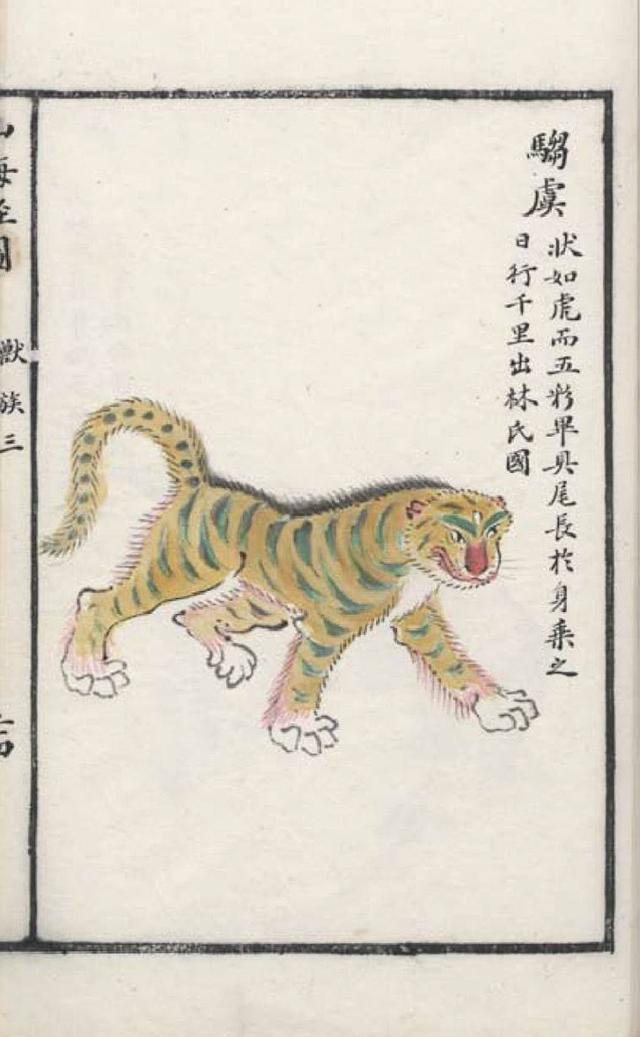 騶虞
狀如虎而五彩畢具尾長於身乗之
日行千里出林氏國
山海至圖
獸族三